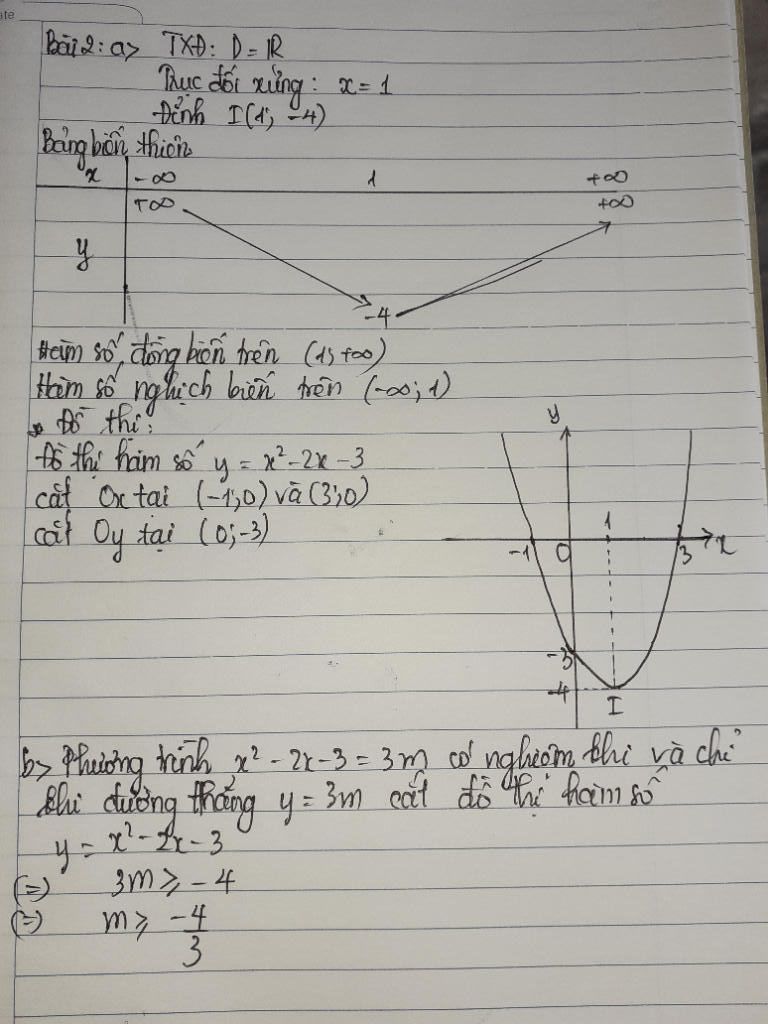 ate
Bài 2: a> TXĐ: D = ℝ
Trục đối xứng: x = 1
Đỉnh I(1; -4)
Bảng biến thiên
x -∞ 1 +∞
+∞ +∞
y
-4
Hàm số đồng biến trên (1; +∞)
Hàm số nghịch biến trên (-∞; 1)
* Đồ thị:
Đồ thị hàm số y = x² - 2x - 3
cắt Ox tại (-1; 0) và (3; 0)
cắt Oy tại (0; -3)
y
1
-1 O 3 x
-3
-4
I
b> Phương trình x² - 2x - 3 = 3m có nghiệm khi và chỉ
khi đường thẳng y = 3m cắt đồ thị hàm số
y = x² - 2x - 3
(=) 3m ≥ -4
(=) m ≥ -4/3